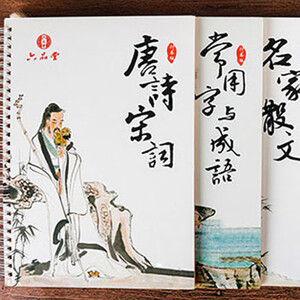 六品堂
唐詩
宋詞
常用
字与成語
名家
散文